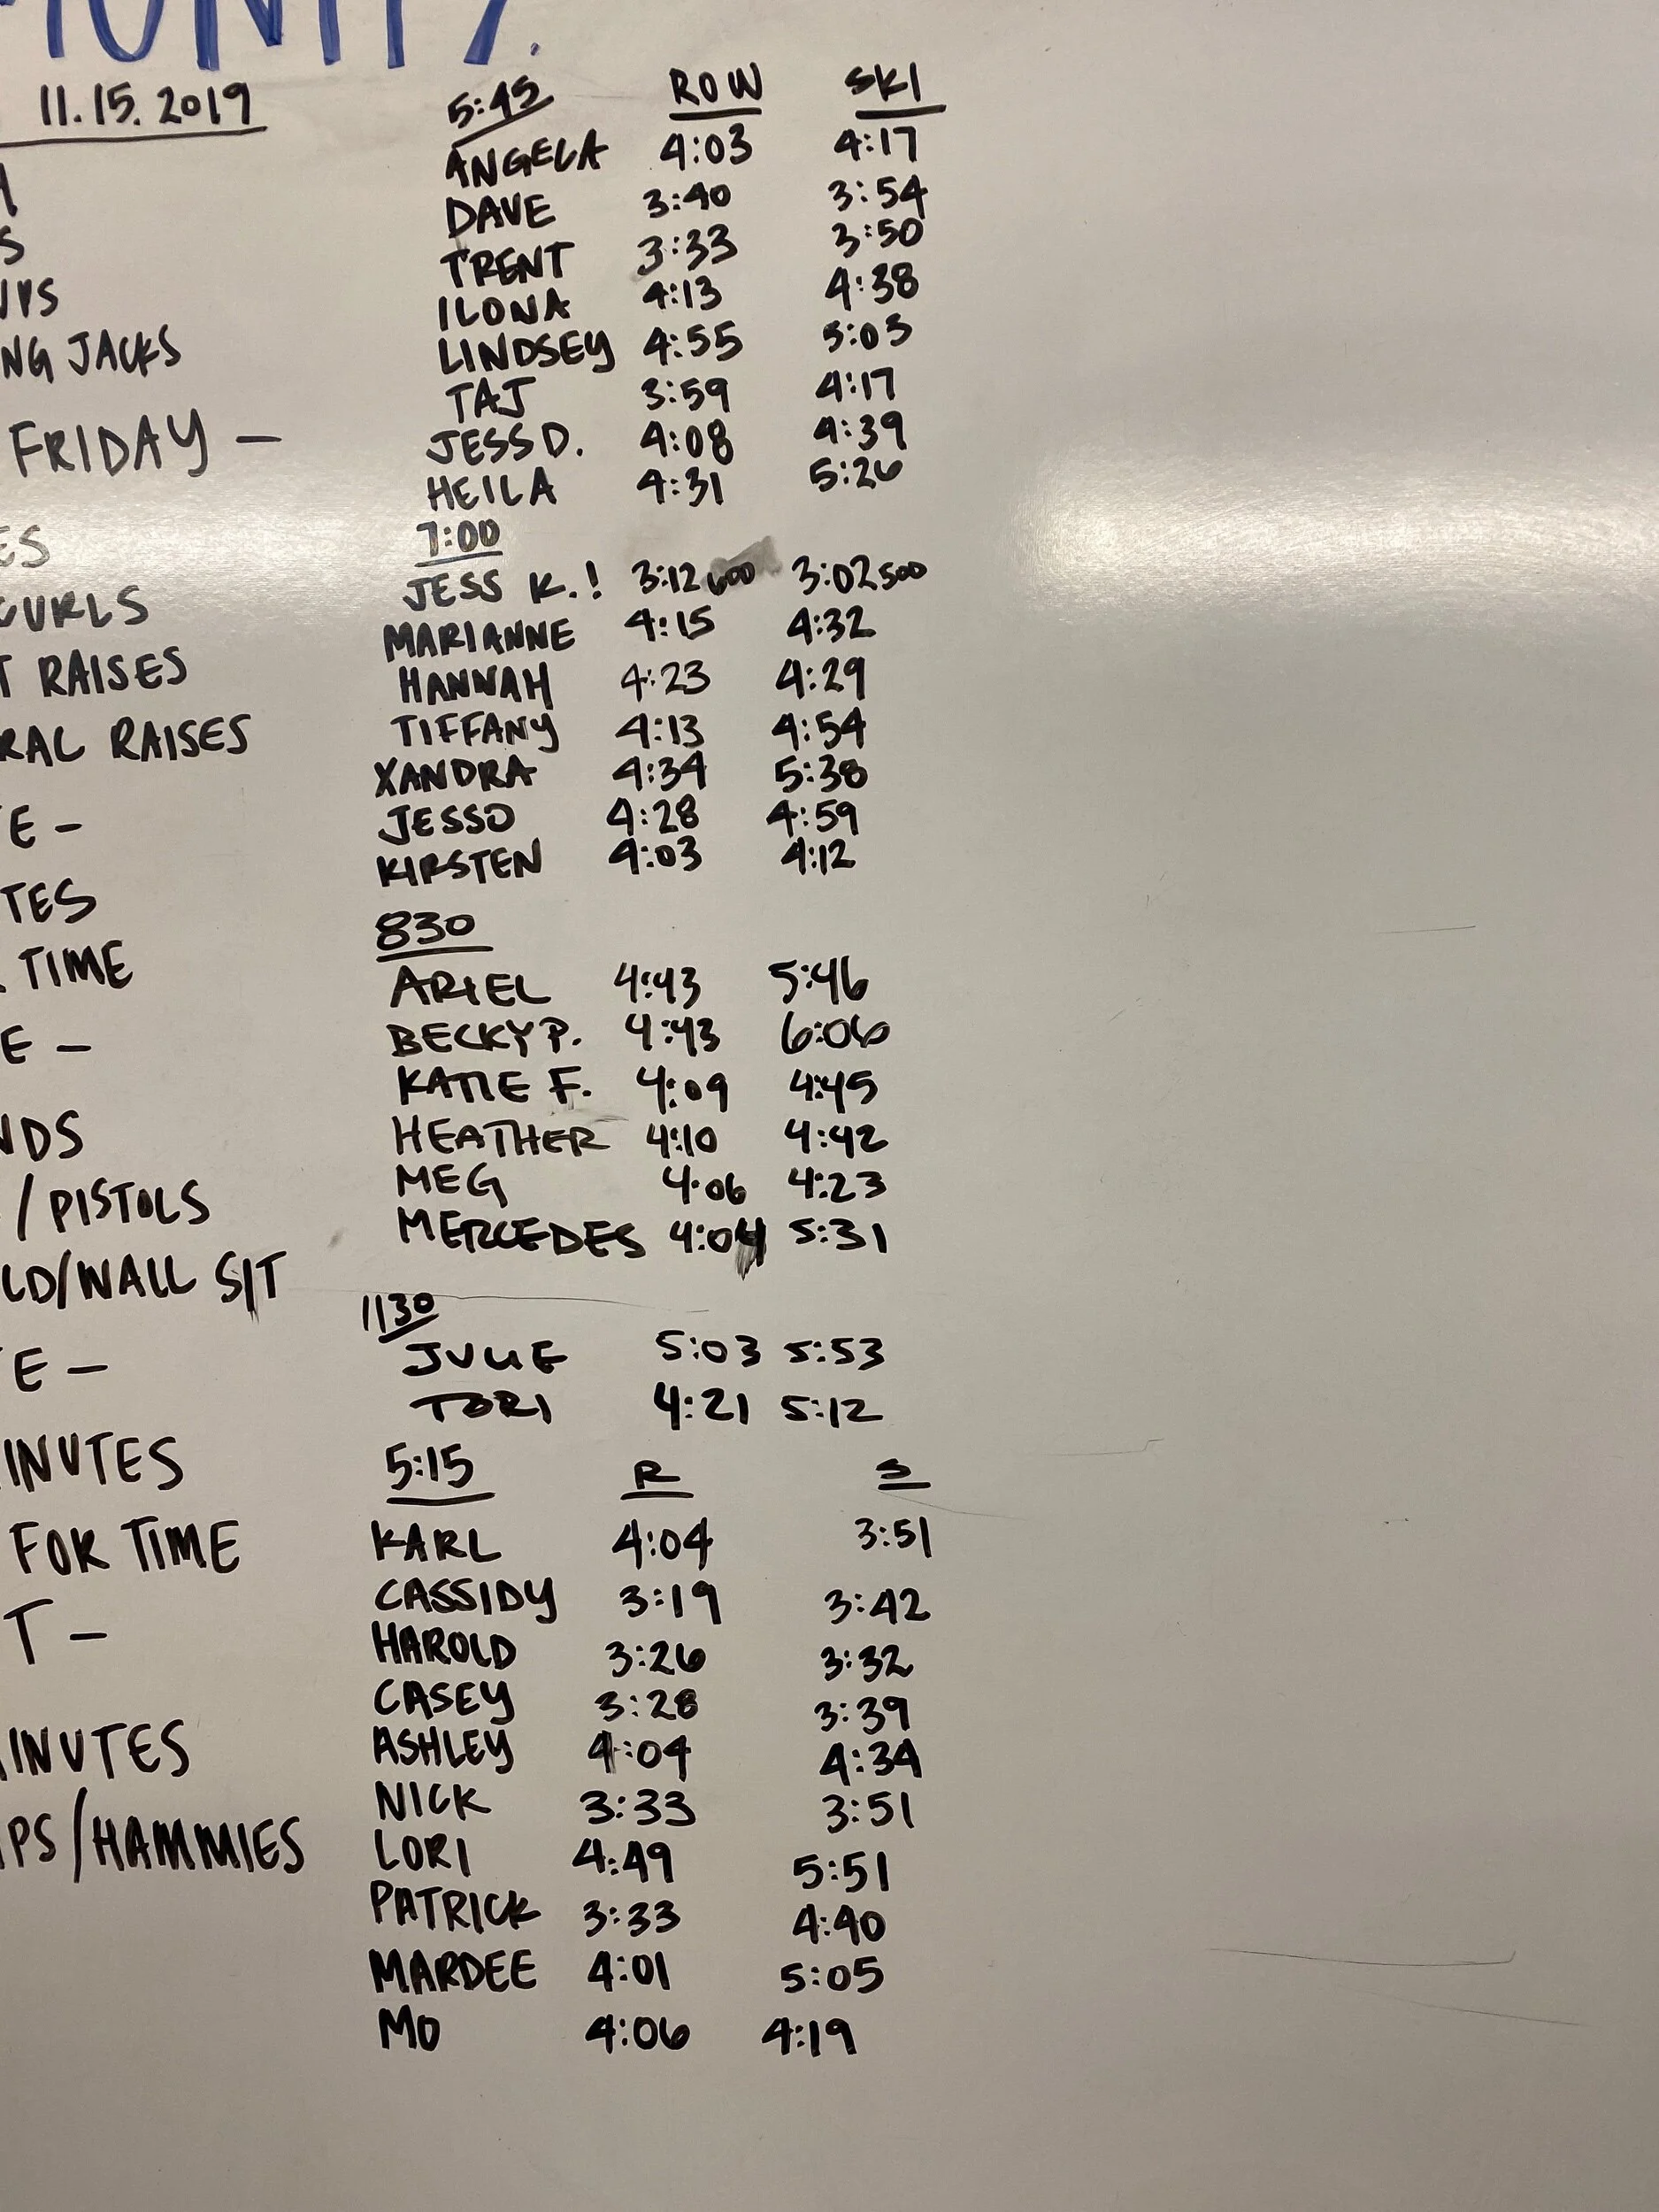 11.15.2019
NG JACKS
FRIDAY -
CURLS
T RAISES
RAL RAISES
E -
TES
TIME
E -
NDS
/ PISTOLS
LD/WALL SIT
E -
INUTES
FOR TIME
T -
INUTES
PS/HAMMIES
5:45 ROW SKI
ANGELA 4:03 4:17
DAVE 3:40 3:54
TRENT 3:33 3:50
ILONA 4:13 4:38
LINDSEY 4:55 5:03
TAJ 3:59 4:17
JESS D. 4:08 4:39
HEILA 4:31 5:26
7:00
JESS K.! 3:12 600 3:02 500
MARIANNE 4:15 4:32
HANNAH 4:23 4:29
TIFFANY 4:13 4:54
XANDRA 4:34 5:38
JESSO 4:28 4:59
KIRSTEN 4:03 4:12
830
ARIEL 4:43 5:46
BECKY P. 4:43 6:06
KATIE F. 4:09 4:45
HEATHER 4:10 4:42
MEG 4:06 4:23
MERCEDES 4:04 5:31
1130
JULIE 5:03 5:53
TORI 4:21 5:12
5:15 R S
KARL 4:04 3:51
CASSIDY 3:19 3:42
HAROLD 3:26 3:32
CASEY 3:28 3:39
ASHLEY 4:04 4:34
NICK 3:33 3:51
LORI 4:49 5:51
PATRICK 3:33 4:40
MARDEE 4:01 5:05
MO 4:06 4:19